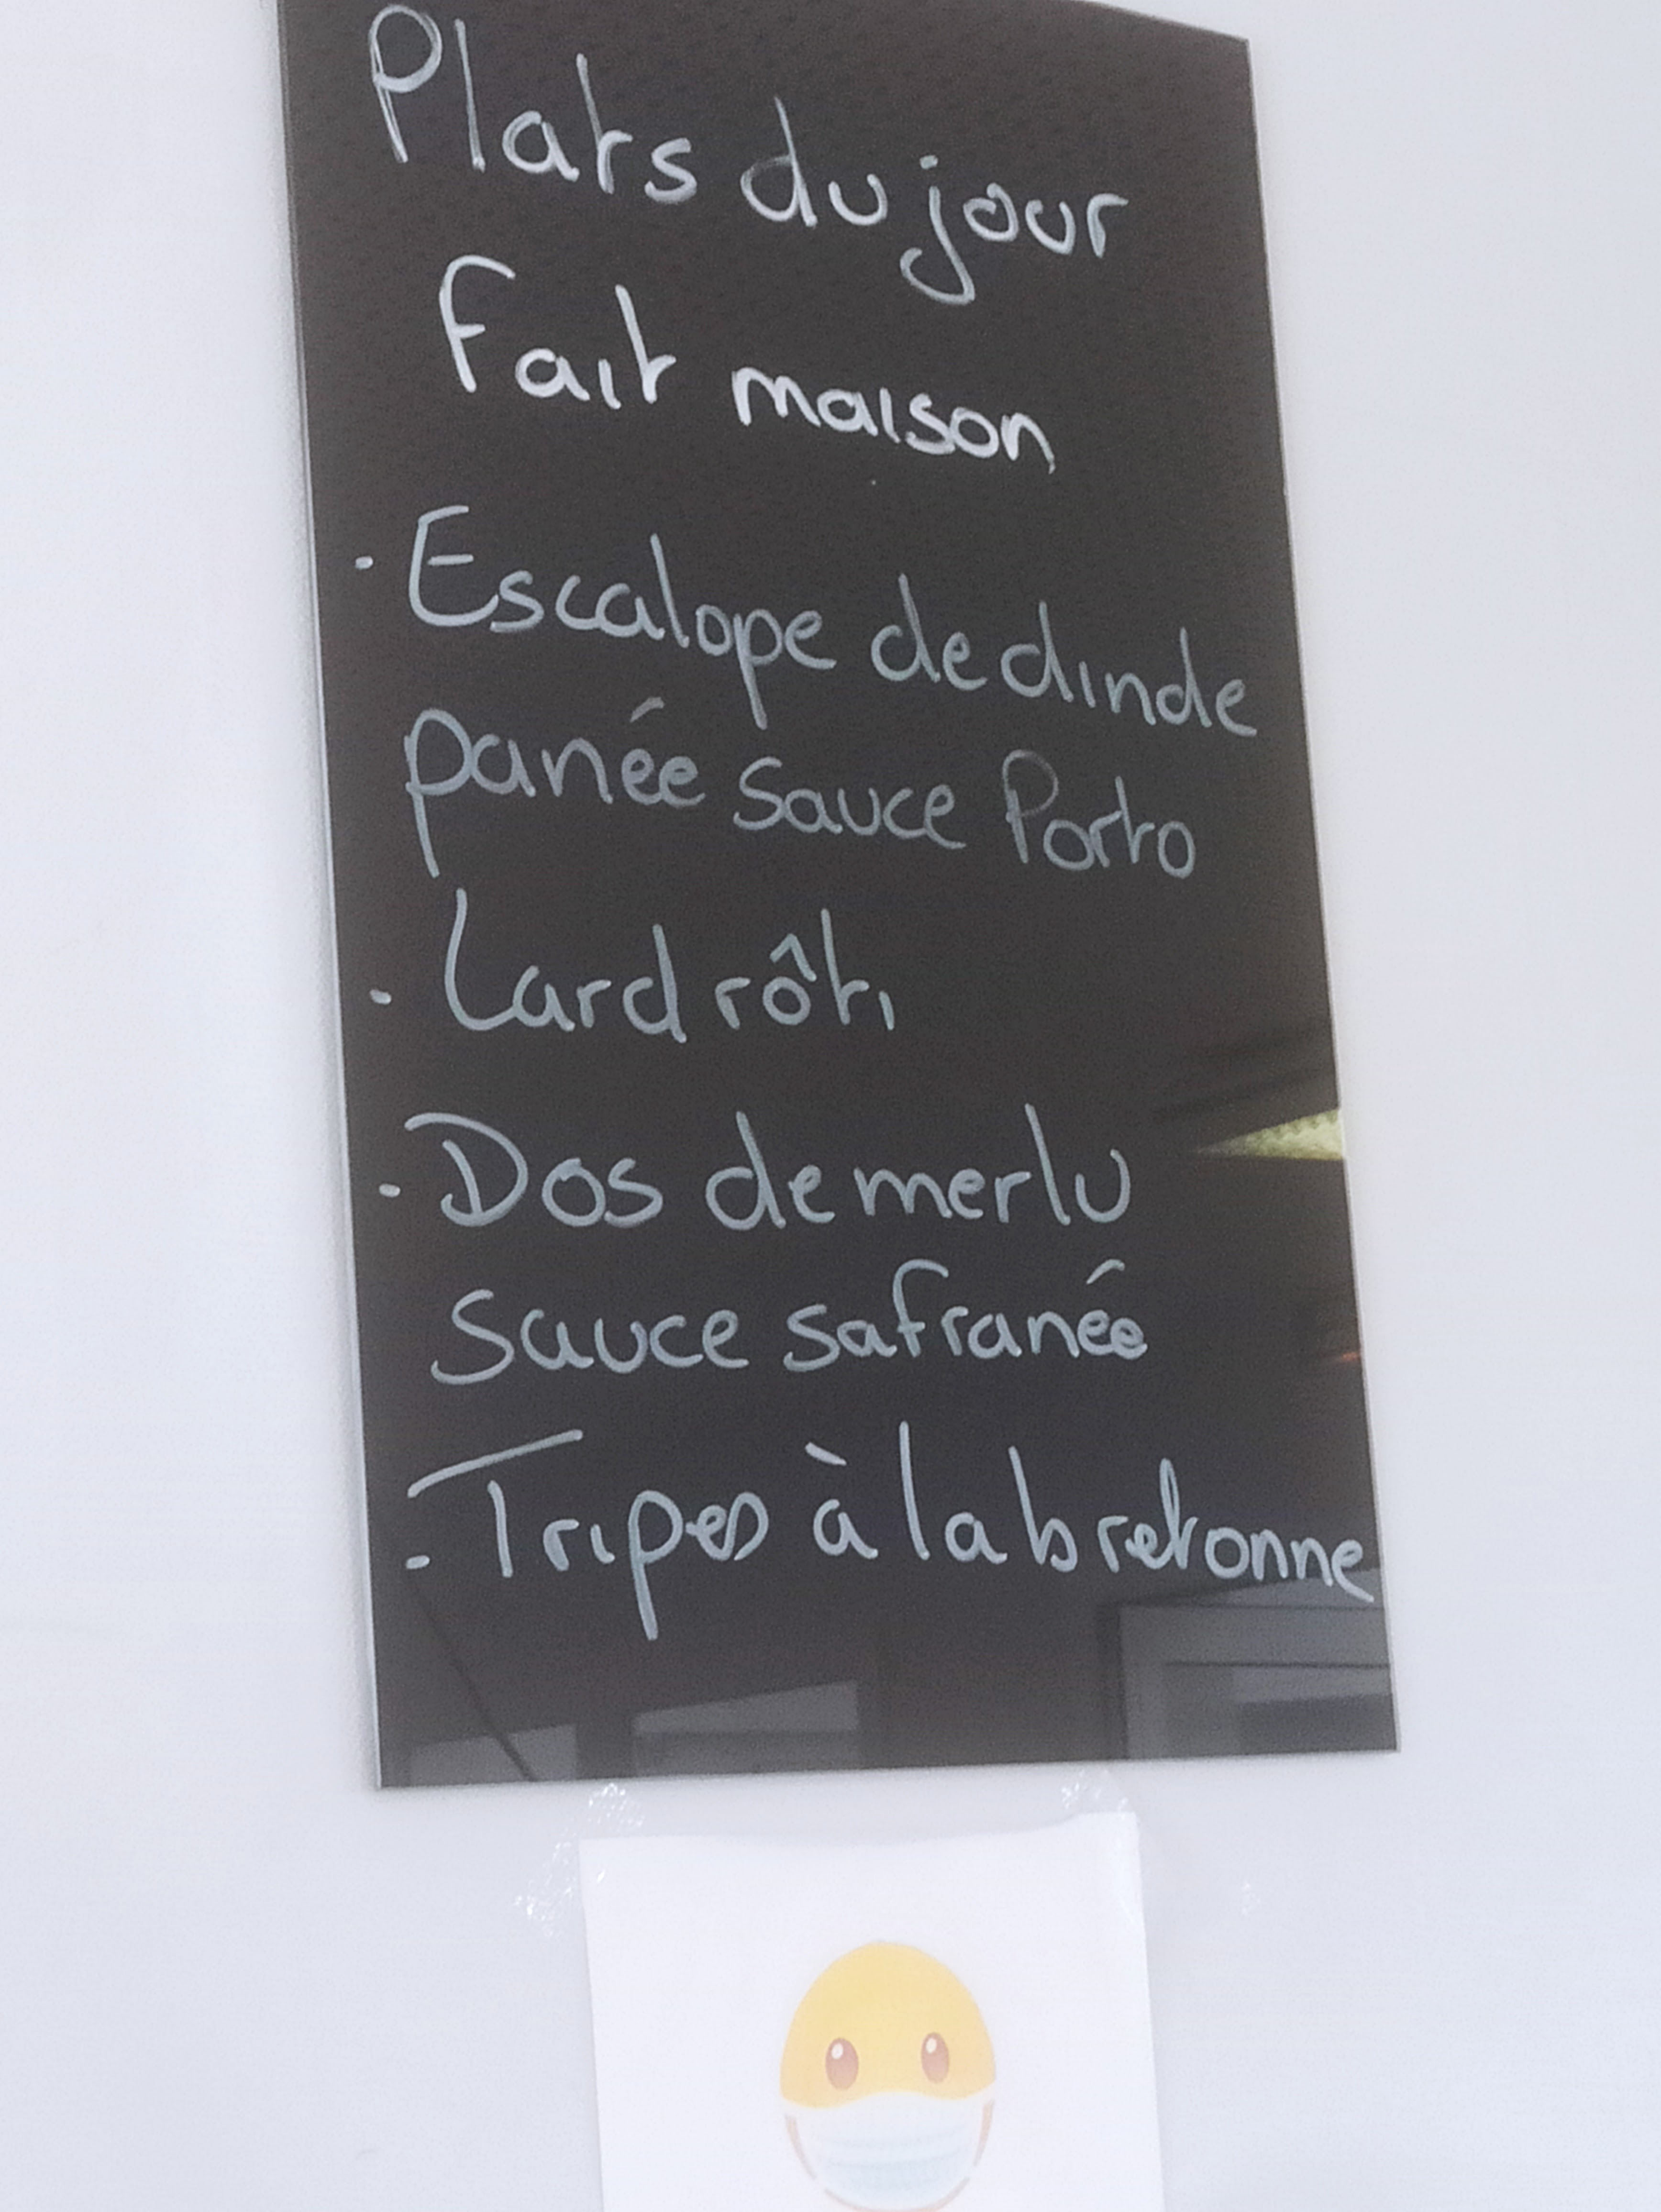 Plats du jour
Fait maison
- Escalope de dinde
panée sauce Porto
- Lard rôti
- Dos de merlu
sauce safranée
- Tripes à la bretonne